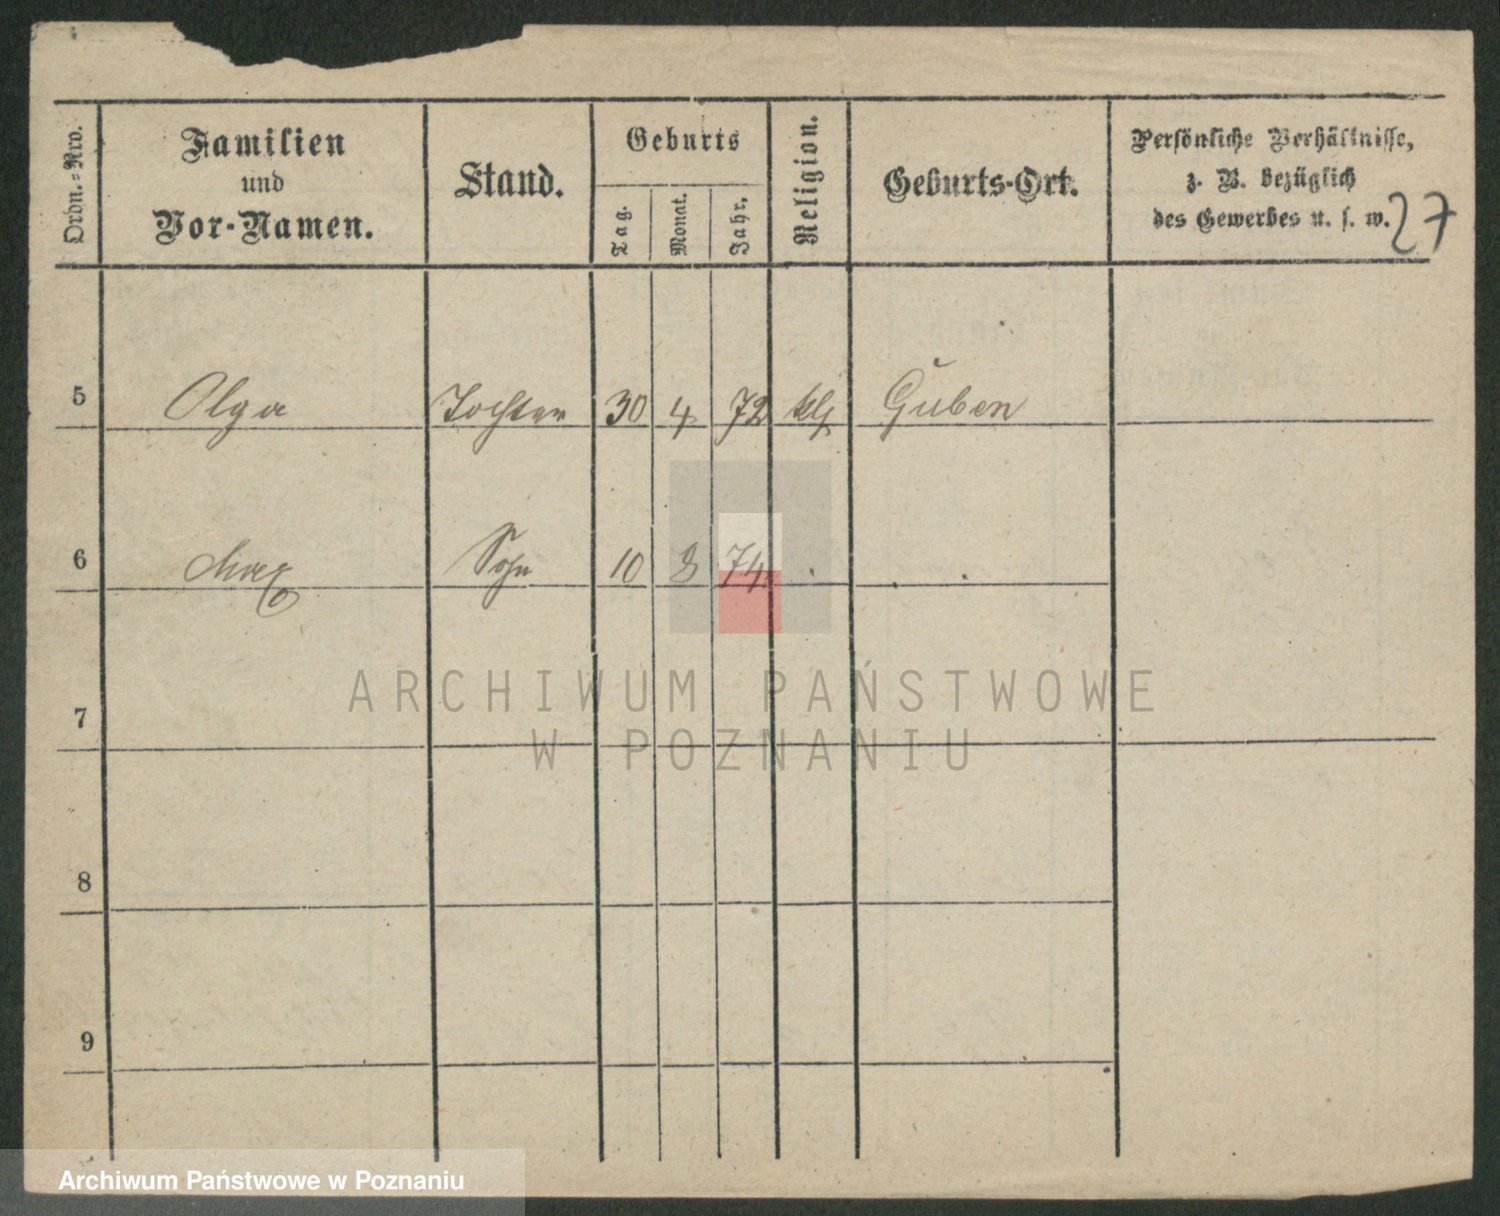 Ordn.-Nro.
Familien
und
Vor-Namen.
Stand.
Geburts
Tag.
Monat.
Jahr.
Religion.
Geburts-Ort.
Persönliche Verhältnisse,
z. B. bezüglich
des Gewerbes u. s. w.
27
5 Olga Tochter 30 4 72 Guben
6 Max Sohn 10 8 74
7
8
9
ARCHIWUM PAŃSTWOWE
W POZNANIU
Archiwum Państwowe w Poznaniu